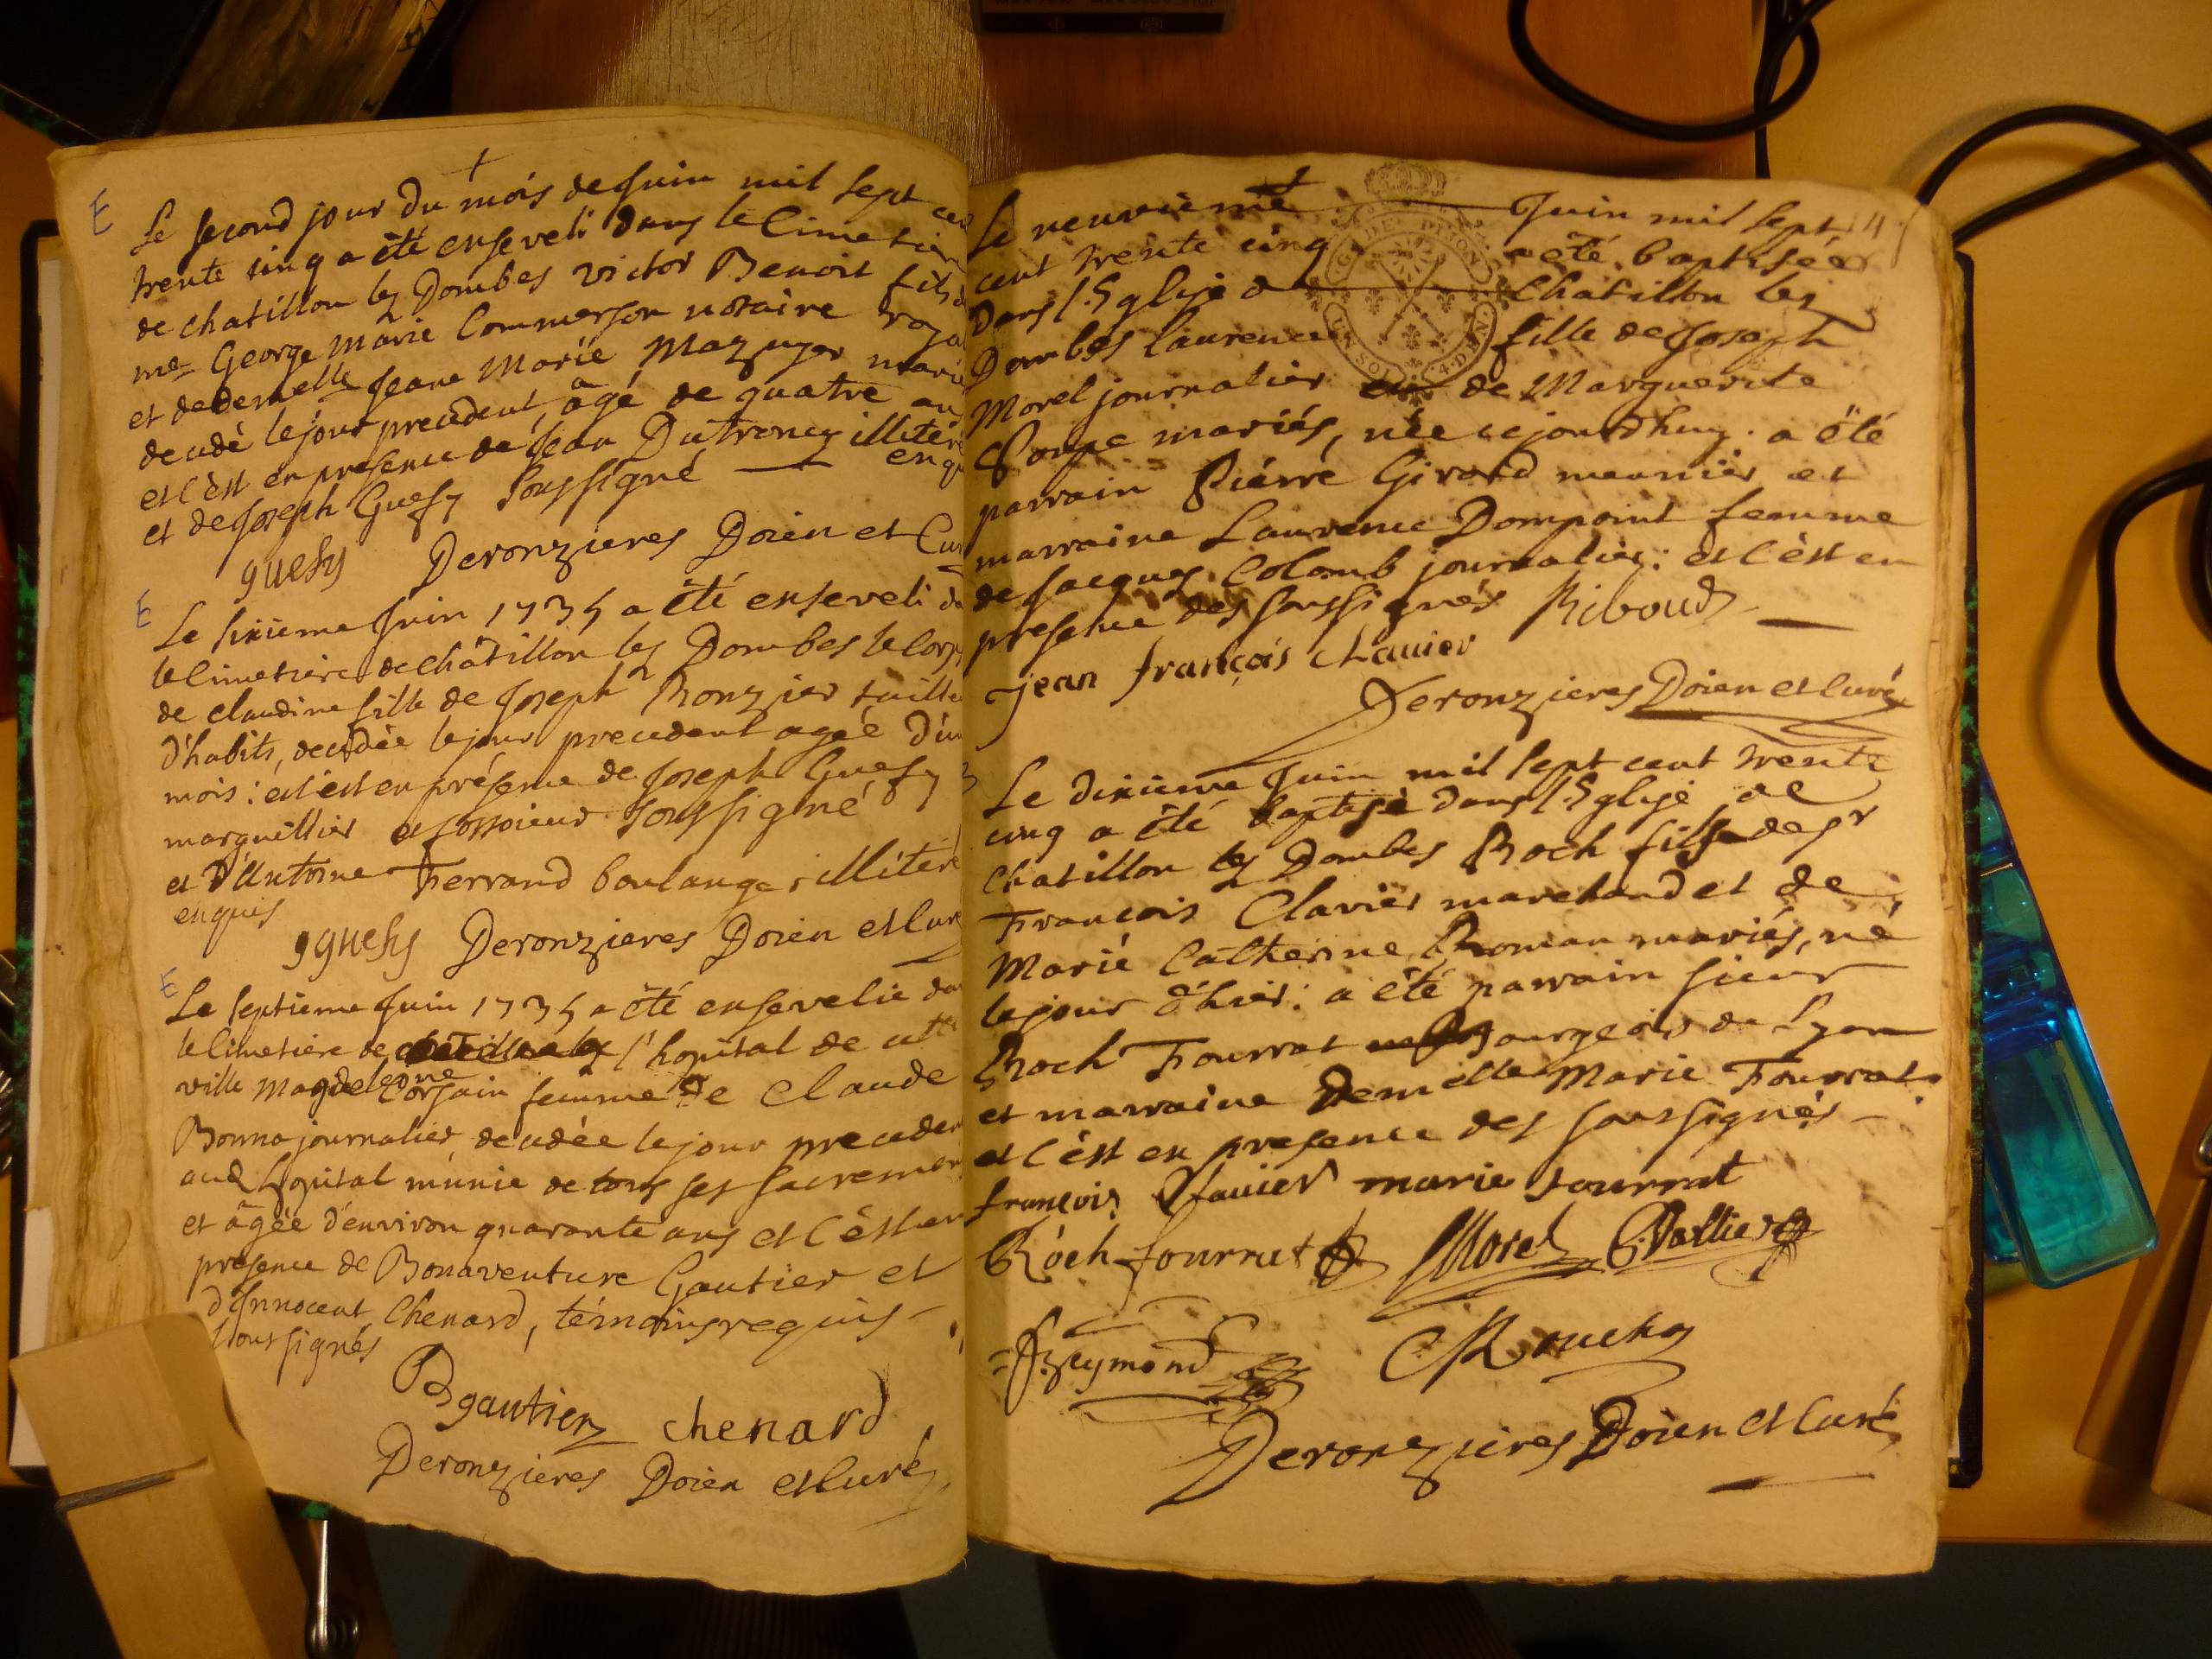 E
Le second jour du mois de Juin mil sept cen
trente cinq a été enseveli dans le Cimetier
de chatillon les Dombes victor Benoit fils d
me George Marie Commerson notaire roya
et de demelle Jeane Marie Mazuyer marié
decedé le jour precedent, âgé de quatre an
et c'est en presence de Jean Dutroncy illiteré
et de Joseph Guesy soussigné — enqu
guesy Deronzieres Doien et Cur
E
Le sixieme Juin 1735 a été enseveli da
le Cimetiere de châtillon les Dombes le corp
de claudine fille de Joseph Ronzier taille
d'habits, decedée le jour precedent agée d'un
mois: et c'est en présence de Joseph Guesy
marguillier et fossoieur soussigné
et d'Antoine Ferrand boulanger illiteré
enquis
gguesy Deronzieres Doien et Curé
E
Le septieme Juin 1735 a été ensevelie da
le Cimetiere de l'hopital de cette
ville Magdeleine Corsain femme de Claude
Bonna journalier, decedée le jour preceden
aud hopital munie de tous ses sacremen
et âgée d'environ quarante ans et c'est en
presence de Bonaventure Gautier et
d'Innocent Chenard, témoins requis —
soussignés
B gautier chenard
Deronzieres Doien et Curé
Le neuvième — Juin mil sept
cent trente cinq a été baptisée
Dans l'Eglise de — Chatillon les
Dombes laurence fille de Joseph
Morel journalier et de Marguerite
Poupe mariés, née ce jourdhuy. a été
parrain Piérre Girard meunier et
marraine Laurence Dompoint femme
de Jacques Colomb journalier: et c'est en
presence des soussignés Riboud
jean françois clavier
Deronzieres Doien et Curé
G. DE DIJON
UN SOL 4 DEN.
Le dixieme Juin mil sept cent trente
cinq a été baptisé dans l'Eglise de
Chatillon les Dombes Roch fils de sr
François Clavier marchand et de
Marie Catherine Roman mariés, né
le jour d'hier: a été parrain sieur
Roch Fourrat bourgeois de Lyon
et marraine Demelle Marie Fourrat:
et c'est en presence des soussignés —
françois Clavier marie fourrat
Roch fourrat Morel Vallier
Reymond
Deronzieres Doien et Curé